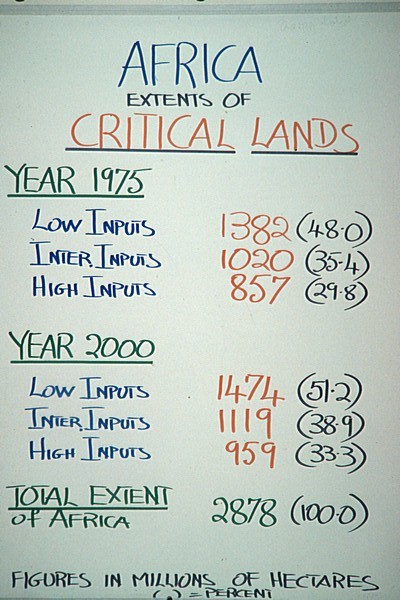 AFRICA
EXTENTS OF
CRITICAL LANDS
YEAR 1975
LOW INPUTS 1382 (48·0)
INTER. INPUTS 1020 (35·4)
HIGH INPUTS 857 (29·8)
YEAR 2000
LOW INPUTS 1474 (51·2)
INTER. INPUTS 1119 (38·9)
HIGH INPUTS 959 (33·3)
TOTAL EXTENT
of AFRICA 2878 (100·0)
FIGURES IN MILLIONS OF HECTARES
( . ) = PERCENT